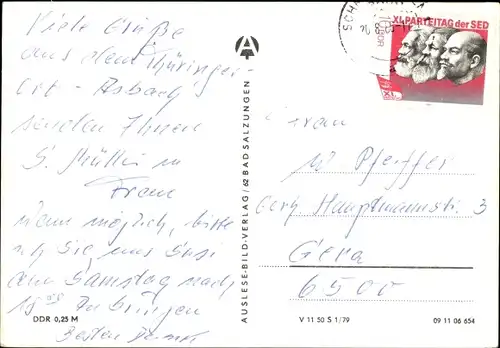 Viele Grüße
aus dem Thüringer-
Ort - Asbach
senden Ihnen
S. Müller u
Frau
Wenn möglich, bitte
Sie uns Susi
am Samstag nach
18 00 zu bringen
Besten Dank
DDR 0,25 M
AUSLESE-BILD-VERLAG / 62 BAD SALZUNGEN
XI. PARTEITAG der SED
XI.
Frau
Pfeiffer
Gerh Hauptmannstr. 3
Gera
6500
V 11 50 S 1/79
09 11 06 654